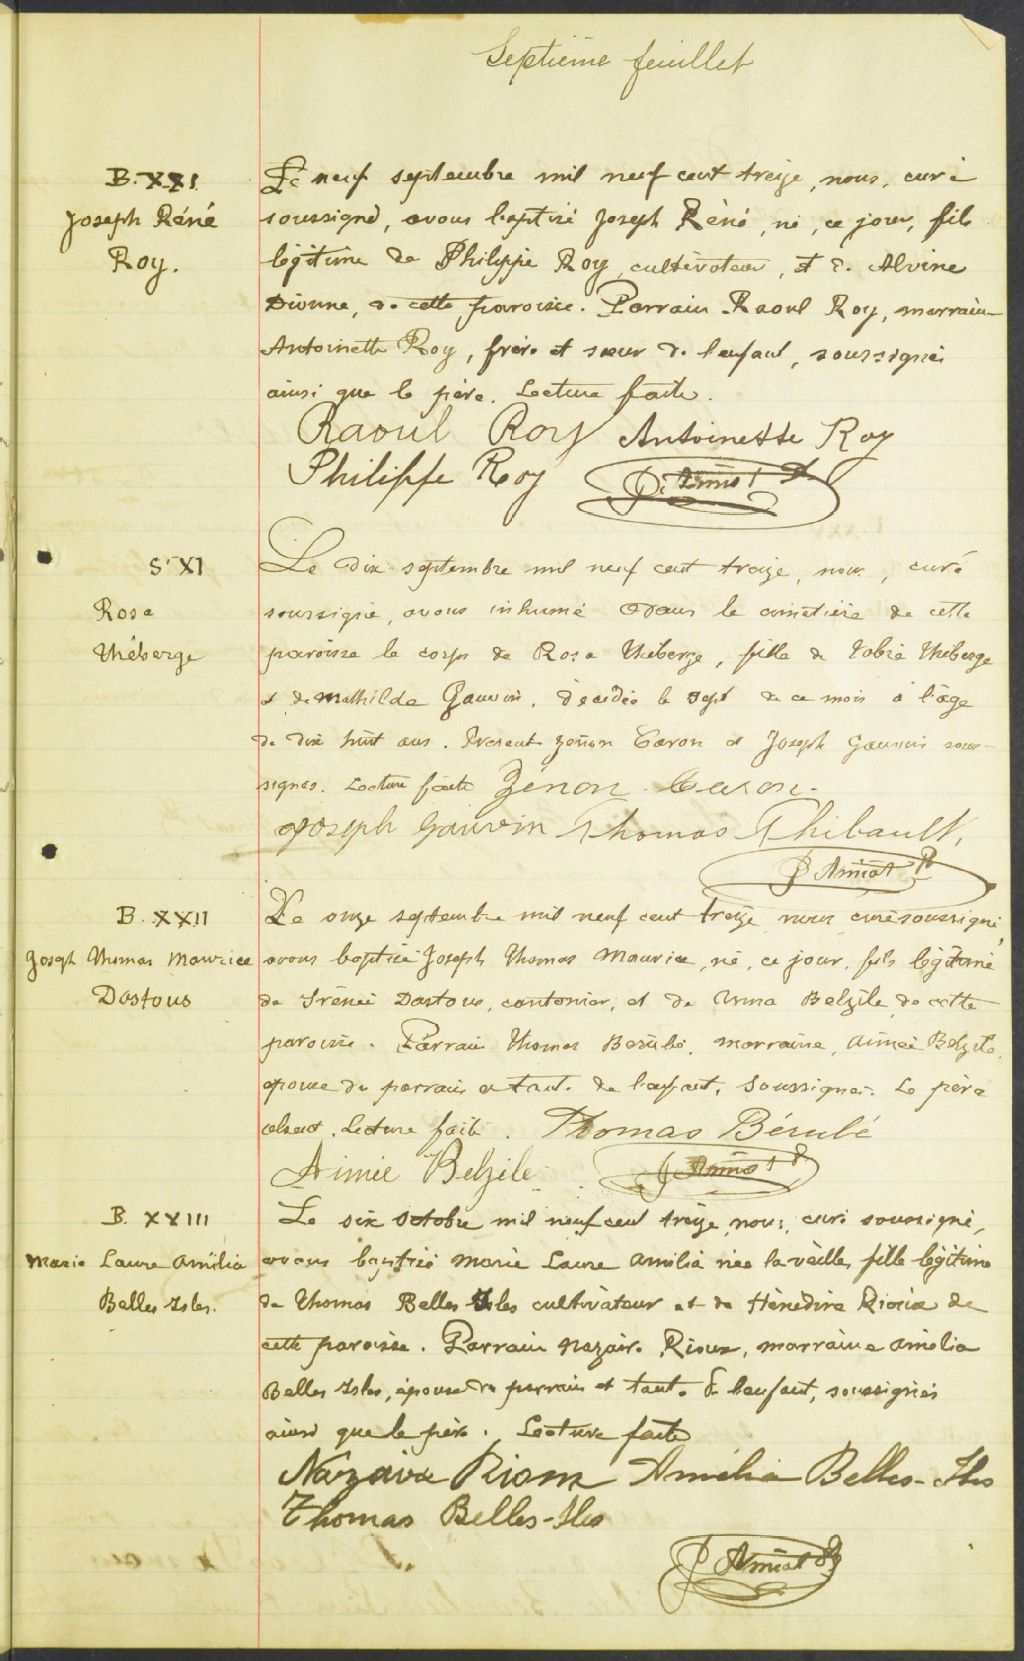 Septième feuillet
B. XXI
Joseph Réné
Roy.
Le neuf septembre mil neuf cent treize, nous, curé
soussigné, avons baptisé Joseph Réné, né, ce jour, fils
légitime de Philippe Roy, cultivateur, et d. Alvine
Dionne, de cette paroisse. Parrain Raoul Roy, marraine
Antoinette Roy, frère et sœur de l'enfant, soussignés
ainsi que le père. Lecture faite.
Raoul Roy Antoinette Roy
Philippe Roy
S. XI
Rosa
Théberge
Le dix septembre mil neuf cent treize, nous, curé
soussigné, avons inhumé dans le cimetière de cette
paroisse le corps de Rosa Théberge, fille de Tobie Théberge
et de Mathilde Gauvin, décédée le sept de ce mois à l'âge
de dix huit ans. Présents Zénon Caron et Joseph Gauvin sous-
signés. Lecture faite Zénon Caron.
Joseph Gauvin Thomas Thibault,
P Amiot Ptr
B. XXII
Joseph Thomas Maurice
Dastous
Le onze septembre mil neuf cent treize nous curé soussigné,
avons baptisé Joseph Thomas Maurice, né, ce jour, fils légitime
de Irénée Dastous, cantonier, et de Anna Belzile de cette
paroisse. Parrain Thomas Bérubé, marraine, Aimée Belzile,
épouse du parrain et tante de l'enfant, soussignés. Le père
absent. Lecture faite. Thomas Bérubé
Aimée Belzile
B. XXIII
Marie Laure Amélia
Belles Isles.
Le six octobre mil neuf cent treize, nous, curé soussigné,
avons baptisé Marie Laure Amélia née la veille, fille légitime
de Thomas Belles Isles cultivateur et de Hénédine Rioux de
cette paroisse. Parrain Nazaire Rioux, marraine Amélia
Belles Isles, épouse du parrain et tante de l'enfant, soussignés
ainsi que le père. Lecture faite
Nazaire Rioux Amélia Belles-Iles
Thomas Belles-Iles
P Amiot Ptr